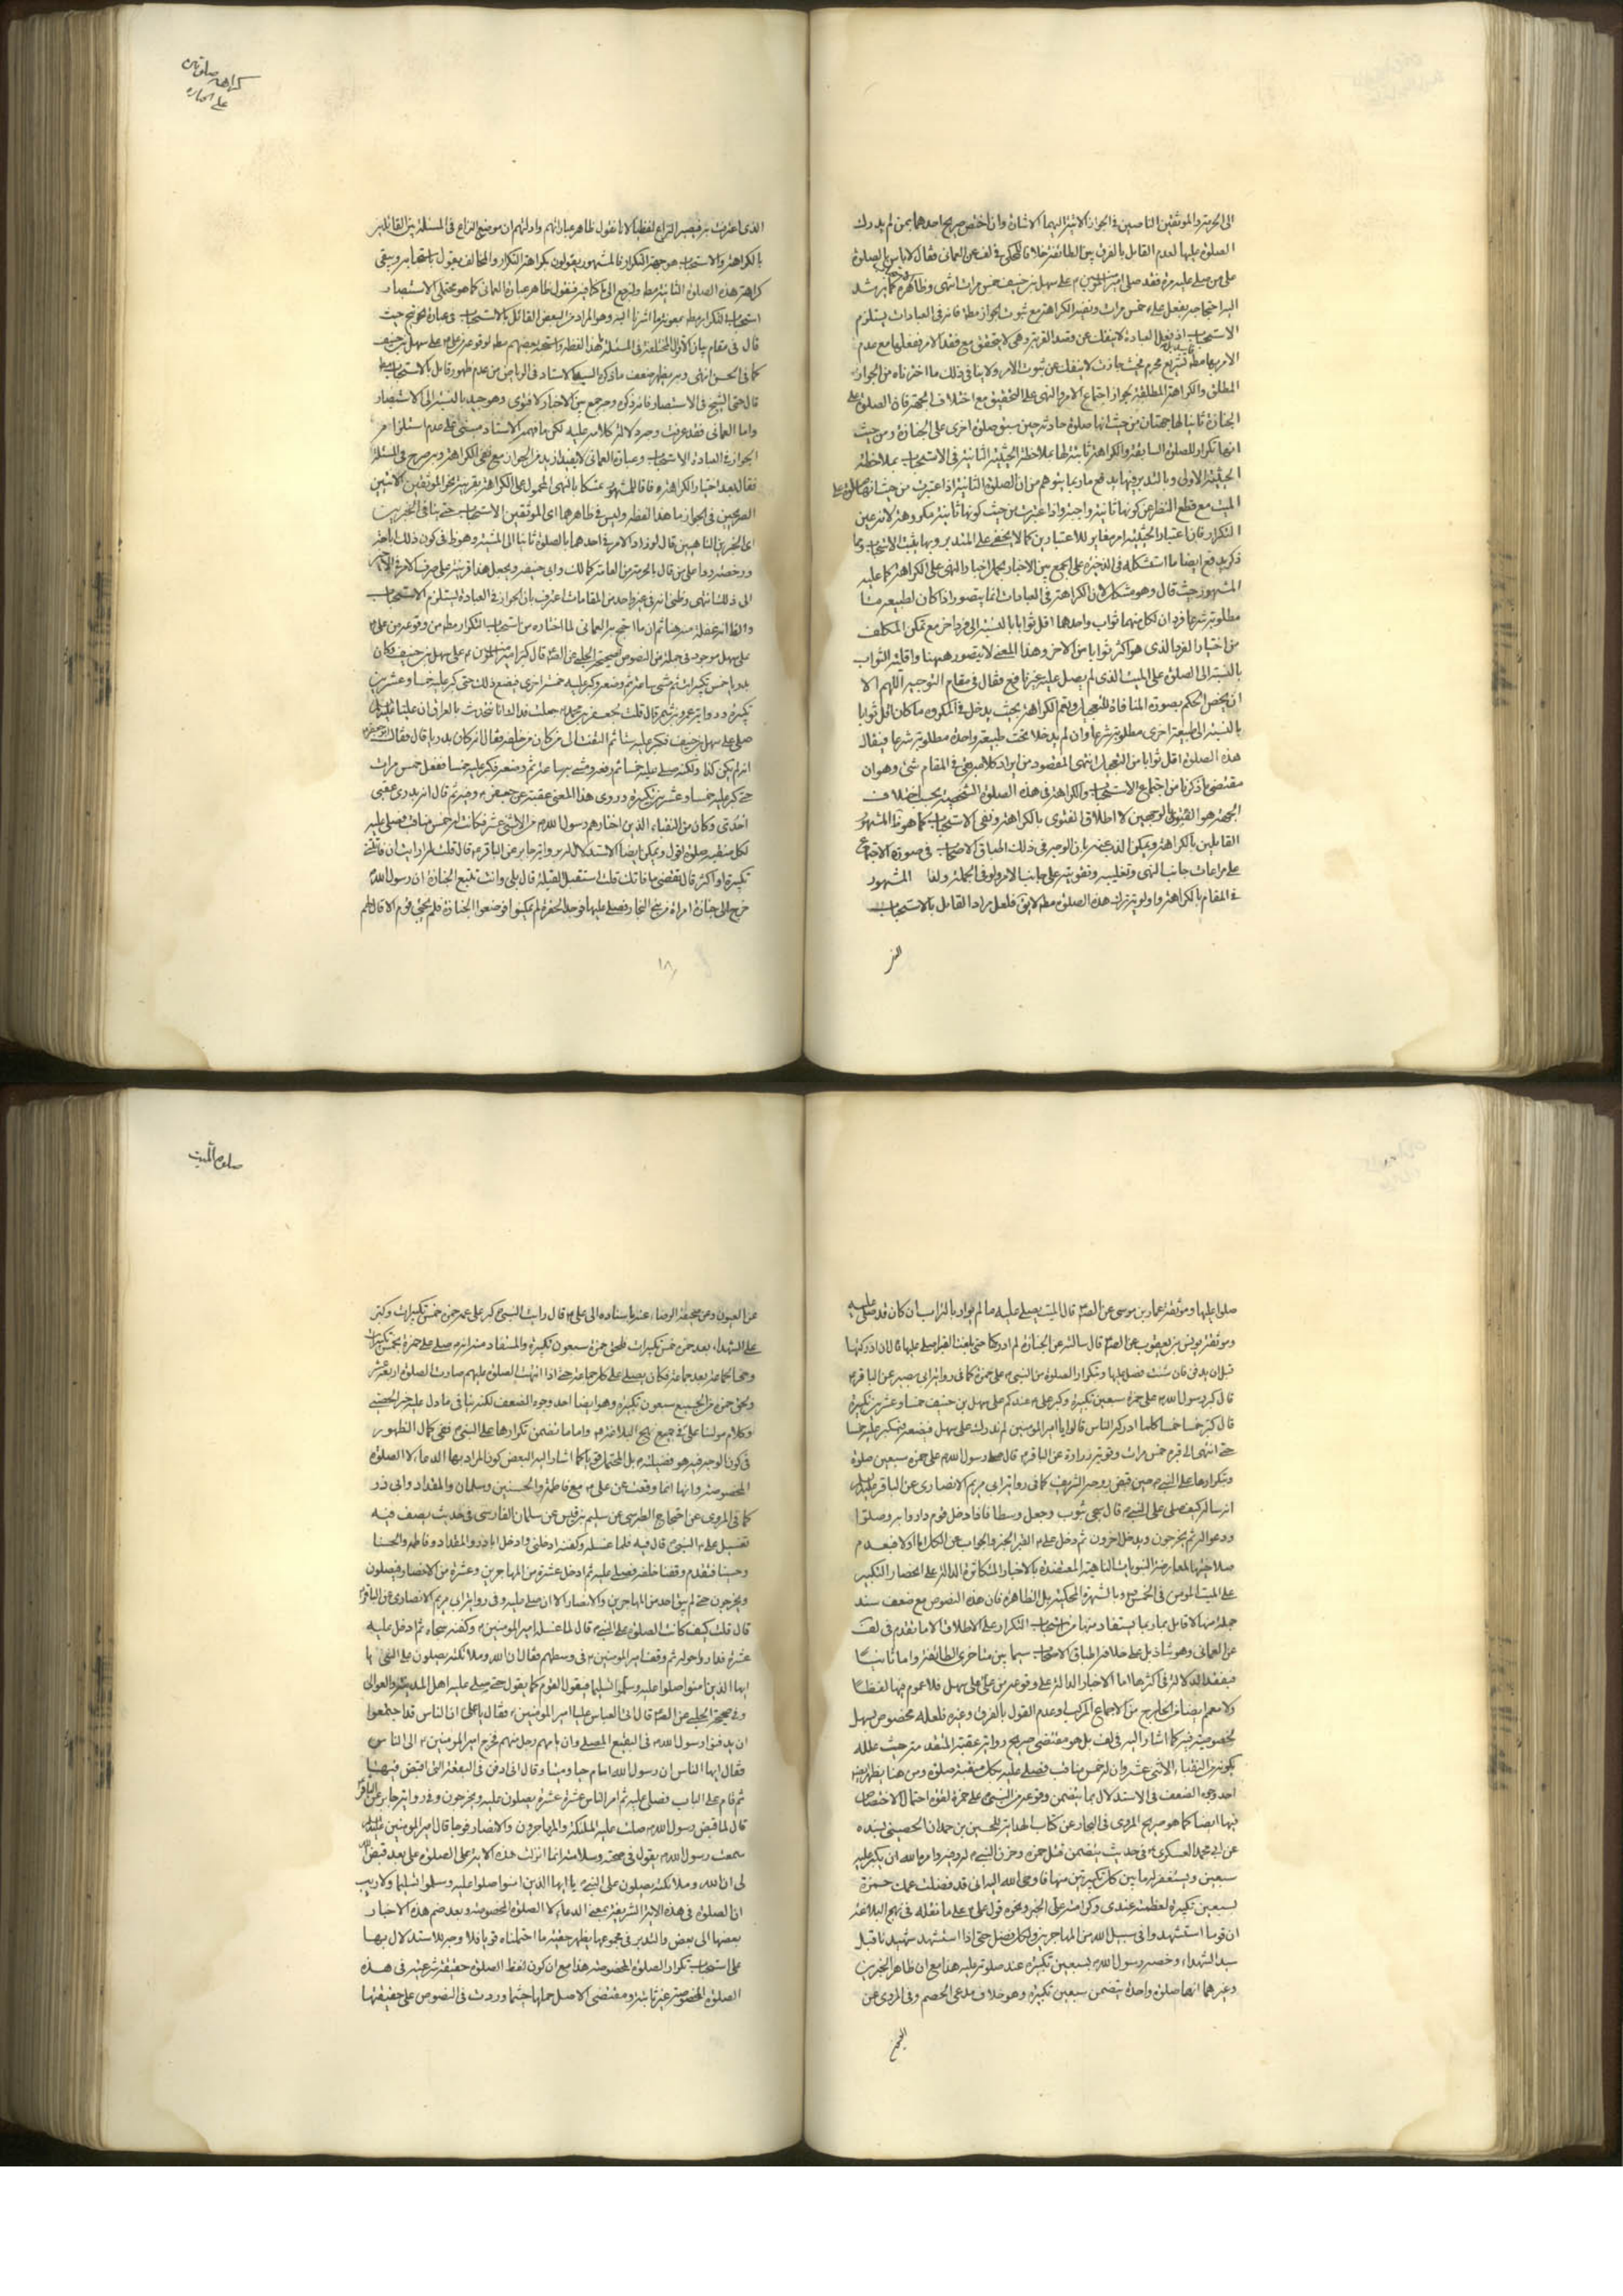 كراهة صلوتين
على الجنازة
الى الحرمة والموثقين الناصين في الجواز الاتية اليهما الاشارة وان اختص صريح احدهما بمن لم يدرك
الصلوة عليها لعدم القائل بالفرق بين الطائفة خلافا للمحكى في لف عن العماني فقال لا باس بالصلوة
على من صلى عليه مرة فقد صلى امير المؤمنين ع على سهل بن حنيف خمس مرات انتهى وظاهره كما يرشد
اليه احتجاجه بفعل على ع خمس مرات ونفيه الكراهة مع ثبوت الجواز مطه فانه في العبادات يستلزم
الاستحباب اذ فعل العبادة لا ينفك عن قصد القربة وهى لا يتحقق مع فقد الامر ففعلها مع عدم
الامر بها مطه تشريع محرم فحيث جازت لا ينفك عن ثبوت الامر ولا ينافى ذلك ما اخترناه من الجواز
المطلق والكراهة المطلقة لجواز اجتماع الامر والنهى على التحقيق مع اختلاف الجهة فان الصلوة على
الجنازة ثانيا لها جهتان من حيث انها صلوة حادثة حين سبق صلوة اخرى على الجنازة ومن حيث
انها تكرار للصلوة السابقة والكراهة ثابتة لها بملاحظة الحيثية الثانية في الاستحباب بملاحظة
الحيثية الاولى وبالتدبر فيها يدفع ما ربما يتوهم من ان الصلوة الثانية اذا اعتبرت من حيث انها صلوة على
الميت مع قطع النظر عن كونها ثانية واجبة واذا اعتبرت من حيث كونها ثانية مكروهة لانه عين
التكرار فان اعتبار الحيثية امر مغاير للاعتبارين كما لا يخفى على المتدبر وبها يثبت الاستحباب وبما
ذكر يدفع ايضا ما استشكله في الذخيرة على الجمع بين الاخبار بحمل اخبار النهى على الكراهة كما عليه
المشهور حيث قال وهو مشكل لان الكراهة في العبادات انما يتصور اذا كان لطبيعة منا
مطلوبة شرعا فردان لكل منهما ثواب واحدهما اقل ثوابا بالنسبة الى فرد اخر مع تمكن المكلف
من اختيار الفرد الذى هو اكثر ثوابا من الاخر وهذا المعنى لا يتصور ههنا واقلية الثواب
بالنسبة الى الصلوة على الميت الذى لم يصل عليه غير نافع فقال في مقام التوجيه اللهم الا
ان يخص الحكم بصورة المنافاة للتعجيل ويعم الكراهة بحيث يدخل في المكروه ما كان اقل ثوابا
بالنسبة الى طبيعة اخرى مطلوبة شرعا وان لم يدخلا تحت طبيعة واحدة مطلوبة شرعا فيقال
هذه الصلوة اقل ثوابا من التعجيل انتهى المقصود من ايراد كلامه بقى في المقام شئ وهو ان
مقتضى ما ذكرنا من اجتماع الاستحباب والكراهة في هذه الصلوة الشخصية بحسب اختلاف
الجهة هو القول بالوجهين لا اطلاق الفتوى بالكراهة ونفى الاستحباب كما هو ظ المشهور
القائلين بالكراهة ويمكن الذب عنه بان الوجه في ذلك اطباق الاصحاب في صورة الاجتماع
على مراعات جانب النهى وتغليبه وتقويته على جانب الامر ولو في الجملة ولقا المشهور
في المقام بالكراهة واولوية ترك هذه الصلوة مطه لايق فلعل مراد القائل بالاستحباب
الذى اعترفت به فيصير النزاع لفظيا لانا نقول ظاهر عباراتهم وادلتهم ان موضع النزاع في المسئلة بين القائلين
بالكراهة والاستحباب هو جهة التكرار فالمشهور يقولون بكراهة التكرار والمخالف يقول باستحبابه ويبقى
كراهة هذه الصلوة الثانية مطه ولنرجع الى ما كنا فيه فنقول ظاهر عبارة العماني كما هو محتمل الاستبصار
استحباب التكرار مطه بمعونة ما اشرنا اليه وهو المراد من البعض القائل بالاستحباب في عبارة حيث
قال في مقام بيان الاقوال المختلفة في المسئلة هذا لفظه واستحبه بعضهم مطه لوقوعه من على ع على سهل بن حنيف
كما في الحسن انتهى وبه يظهر ضعف ما ذكره السيد الاستاد في الرياض من عدم ظهور قائل بالاستحباب مطه
قال حتى الشيخ في الاستبصار فانه ذكره وجه جمع بين الاخبار لا فتوى وهو جيد بالنسبة الى الاستبصار
واما العماني فقد عرفت وجه دلالة كلامه عليه لكن ما فهمه الاستاد مبنى على عدم استلزام
الجواز في العبادة الاستحباب وعبارة العماني لا يفيد ازيد من الجواز مع نفى الكراهة وبه صرح في المسئلة
فقال بعد اختيار الكراهة وفاقا للمشهور تمسكا بالنهى المحمول على الكراهة بقرينة نحو الموثقين الاتيين
الصريحين في الجواز ما هذا لفظه وليس في ظاهرهما اى الموثقين الاستحباب حتى ينافى الخبرين
اى الخبرين الناهيين قال لورود الامر في احدهما بالصلوة ثانيا الى المشية وهو ظ في كون ذلك اباحة
ورخصة ردا على من قال بالحرمة من العامة كمالك وابى حنيفة ويجعل هذا قرينة على صرف الامر في الاخر
الى ذلك انتهى وظنى انه في غير واحد من المقامات اعترف بان الجواز في العبادة يستلزم الاستحباب
والظ انه غفلة منه هنا ثم ان ما احتج به العماني لما اختاره من استحباب التكرار مطه من وقوعه من على ع
على سهل موجود في جملة من النصوص ففى صحيحة الحلبى عن الص ع قال كبر امير المؤمنين ع على سهل بن حنيف وكان
بدريا خمس تكبيرات ثم مشى ساعة ثم وضعه وكبر عليه خمسة اخرى فصنع ذلك حتى كبر عليه خمسا وعشرين
تكبيرة ورواية عمرو بن شمر قال قلت لجعفر بن محمد ع جعلت فداك انا نتحدث بالعراق ان عليا عليه السلم
صلى على سهل بن حنيف فكبر عليه ستا ثم التفت الى من كان من خلفه فقال انه كان بدريا قال فقال ابو جعفر ع
انه لم يكن كذا ولكنه صلى عليه خمسا ثم رفعه ومشى به ساعة ثم وضعه فكبر عليه خمسا ففعل خمس مرات
حتى كبر عليه خمسا وعشرين تكبيرة وروى هذا المعنى عقبة عن جعفر ع وفيه ثم قال انه بدرى عقبى
احدى وكان من النقباء الذين اختارهم رسول الله ص من الاثنى عشر فكانت له خمس مناقب فصلى عليه
لكل منقبة صلوة اقول ويمكن ايضا الاستدلال له برواية جابر عن الباقر ع قال قلت له ارايت ان فاتتنى
تكبيرة او اكثر قال تقضى ما فاتك قلت استقبل القبلة قال بلى وانت تتبع الجنازة ان رسول الله ص
خرج الى جنازة امراة من بنى النجار فصلى عليها فوجد الحفرة لم يمكنوا فوضعوا الجنازة فلم يجئ قوم الا قال لهم
صلوة الميت
صلوا عليها وموثقة عمار بن موسى عن الص ع قال الميت يصلى عليه ما لم يوار بالتراب وان كان قد صلى عليه
وموثقة يونس بن يعقوب عن الص ع قال سالته عن الجنازة لم ادركها حتى بلغت القبر اصلى عليها قال ان ادركتها
قبل ان يدفن فان شئت فصل عليها وبتكرار الصلوة من النبى ص على حمزة كما في رواية ابى بصير عن الباقر ع
قال كبر رسول الله ص على حمزة سبعين تكبيرة وكبر على ع عندكم على سهل بن حنيف خمسا وعشرين تكبيرة
قال كبر خمسا خمسا كلما ادركه الناس قالوا يا امير المؤمنين لم ندرك الصلوة على سهل فيضعه فيكبر عليه خمسا
حتى انتهى الى قبره خمس مرات وقوية زرارة عن الباقر ع قال صلى رسول الله ص على حمزة سبعين صلوة
وبتكرارها على النبى ص حين قبض روحه الشريف كما في رواية ابى مريم الانصارى عن الباقر عليه السلم
انه ساله كيف صلى على النبى ص قال سجى بثوب وجعل وسط البيت فاذا دخل قوم داروا به وصلوا
ودعوا له ثم يخرجون ويدخل اخرون ثم دخل على ع القبر الخبر والجواب عن الكل اما اولا فبعدم
صلاحيتها لمعارضة النبويات الناهية المعتضدة بالاخبار المتكاثرة الدالة على انحصار التكبير
على الميت المومن في الخمس وبالشهرة المحكية بل الظاهرة فان هذه النصوص مع ضعف سند
جملة منها لا قائل بما ربما يستفاد منها من استحباب التكرار على الاطلاق الا ما تقدم في لف
عن العماني وهو شاذ بل على خلافه اطباق الاصحاب سيما بين متاخرى الطائفة واما ثانيا
فبفقد الدلالة في اكثرها اما الاخبار الدالة على وقوعه من على ع على سهل فلا عموم فيها لفظا
ولا معمم ايضا من الخارج من الاجماع المركب او عدم القول بالفرق وغيره فلعله مخصوص بسهل
لخصوصية فيه كما اشار اليه في لف بل هو مقتضى صريح رواية عقبة المتقدمة حيث علله
بكونه من النقباء الاثنى عشر وان له خمس مناقب فصلى عليه بكل منقبة صلوة ومن هنا يظهر وجه
احد وجهى الضعف في الاستدلال بما يتضمن وقوعه من النبى ص على حمزة لقوة احتمال الاختصاص
فيها ايضا كما هو صريح المروى في البحار عن كتاب الهداية للحسين بن حمدان الحصينى بسنده
عن ابى محمد العسكرى ع في حديث يتضمن قتل حمزة وحزن النبى ص له وفيه وامره الله ان يكبر عليه
سبعين ويستغفر له ما بين كل تكبيرتين منها فاوحى الله اليه انى قد فضلت عمك حمزة
بسبعين تكبيرة لعظمته عندى وكرامته على الخبر ونحوه قول على ع على ما نقله في نهج البلاغة
ان قوما استشهدوا في سبيل الله من المهاجرين ولكل فضل حتى اذا استشهد شهيدنا قيل
سيد الشهداء وخصه رسول الله ص بسبعين تكبيرة عند صلوته عليه هذا مع ان ظاهر الخبرين
وغيرهما انها صلوة واحدة يتضمن سبعين تكبيرة وهو خلاف مدعى الخصم وفى المروى عن
عن العيون وعن صحيفة الرضا ع عنه باسناده الى على ع قال رايت النبى ص كبر على عمه حمزة خمس تكبيرات وكبر
على الشهداء بعد حمزة خمس تكبيرات فلحق حمزة سبعون تكبيرة والمستفاد منه انه ص صلى على حمزة بخمس تكبيرات
وجئ بالجماعة بعد جماعة فكان يصلى على كل جماعة حتى اذا انتهت الصلوة عليهم صارت الصلوة اربعة عشر
ولحق حمزة من الجميع سبعون تكبيرة وهو ايضا احد وجوه الضعف لكنه ينافى ما دل عليه خبر الحصينى
وكلام مولينا على ع في جميع نهج البلاغة واما ما تضمن تكرارها على النبى ص ففى كمال الظهور
في كون الوجه فيه هو فضيلته بل المحتمل قويا كما اشار اليه البعض كون المراد بها الدعاء لا الصلوة
المخصوصة وانها انما وقعت عن على ع مع فاطمة والحسنين وسلمان والمقداد وابى ذر
كما في المروى عن احتجاج الطبرسى عن سليم بن قيس عن سلمان الفارسى في حديث يصف فيه
تغسيل على ع النبى ص قال فيه فلما غسله وكفنه ادخلنى وادخل اباذر والمقداد وفاطمة والحسنا
وحسينا فتقدم وقفنا خلفه فصلى عليه ثم ادخل عشرة من المهاجرين وعشرة من الانصار فيصلون
ويخرجون حتى لم يبق احد من المهاجرين والانصار الا ان صلى عليه وفى رواية ابى مريم الانصارى عن الباقر ع
قال قلت كيف كانت الصلوة على النبى ص قال لما غسله امير المؤمنين ع وكفنه سجاه ثم دخل عليه
عشرة فداروا حوله ثم وقف امير المؤمنين ع في وسطهم فقال ان الله وملائكته يصلون على النبى يا
ايها الذين امنوا صلوا عليه وسلموا تسليما فيقول القوم كما يقول حتى صلى عليه اهل المدينة والعوالى
وفى صحيحة الحلبى عن الص ع قال اتى العباس عليا امير المؤمنين ع فقال يا على ان الناس قد اجتمعوا
ان يدفنوا رسول الله ص في البقيع المصلى وان يامهم رجل منهم فخرج امير المؤمنين ع الى الناس
فقال ايها الناس ان رسول الله امام حيا وميتا وقال انى ادفن في البقعة التى اقبض فيها
ثم قام على الباب فصلى عليه ثم امر الناس عشرة عشرة يصلون عليه ويخرجون وفى رواية جابر عن الباقر ع
قال لما قبض رسول الله ص صلت عليه الملئكة والمهاجرون والانصار فوجا قال امير المؤمنين عليه السلم
سمعت رسول الله ص يقول في صحته وسلامته انما انزلت هذه الاية على الصلوة على بعد قبض الله
لى ان الله وملائكته يصلون على النبى ص يا ايها الذين امنوا صلوا عليه وسلموا تسليما ولا ريب
ان الصلوة في هذه الاية الشريفة بمعنى الدعاء لا الصلوة المخصوصة وبعد ضم هذه الاخبار
بعضها الى بعض والتدبر في مجموعها يظهر حقية ما احتملناه قويا فلا وجه للاستدلال بها
على استحباب تكرار الصلوة المخصوصة هذا مع ان كون لفظ الصلوة حقيقة شرعية في هذه
الصلوة المخصوصة غير ثابتة ومقتضى الاصل حملها حيثما وردت في النصوص على حقيقتها